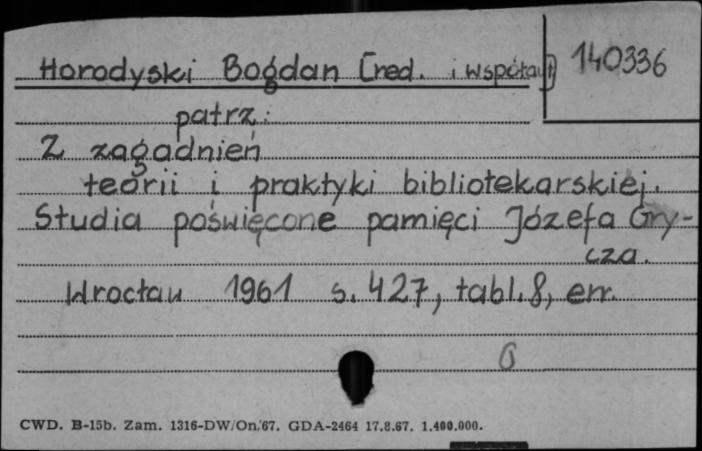 Horodyski Bogdan [red. i współaut]
140336
patrz:
Z zagadnień
teorii i praktyki bibliotekarskiej.
Studia poświęcone pamięci Józefa Gry-
cza.
Wrocław 1961 s. 427, tabl. 8, err.
CWD. B-15b. Zam. 1316-DW/On.67. GDA-2464 17.8.67. 1.400.000.